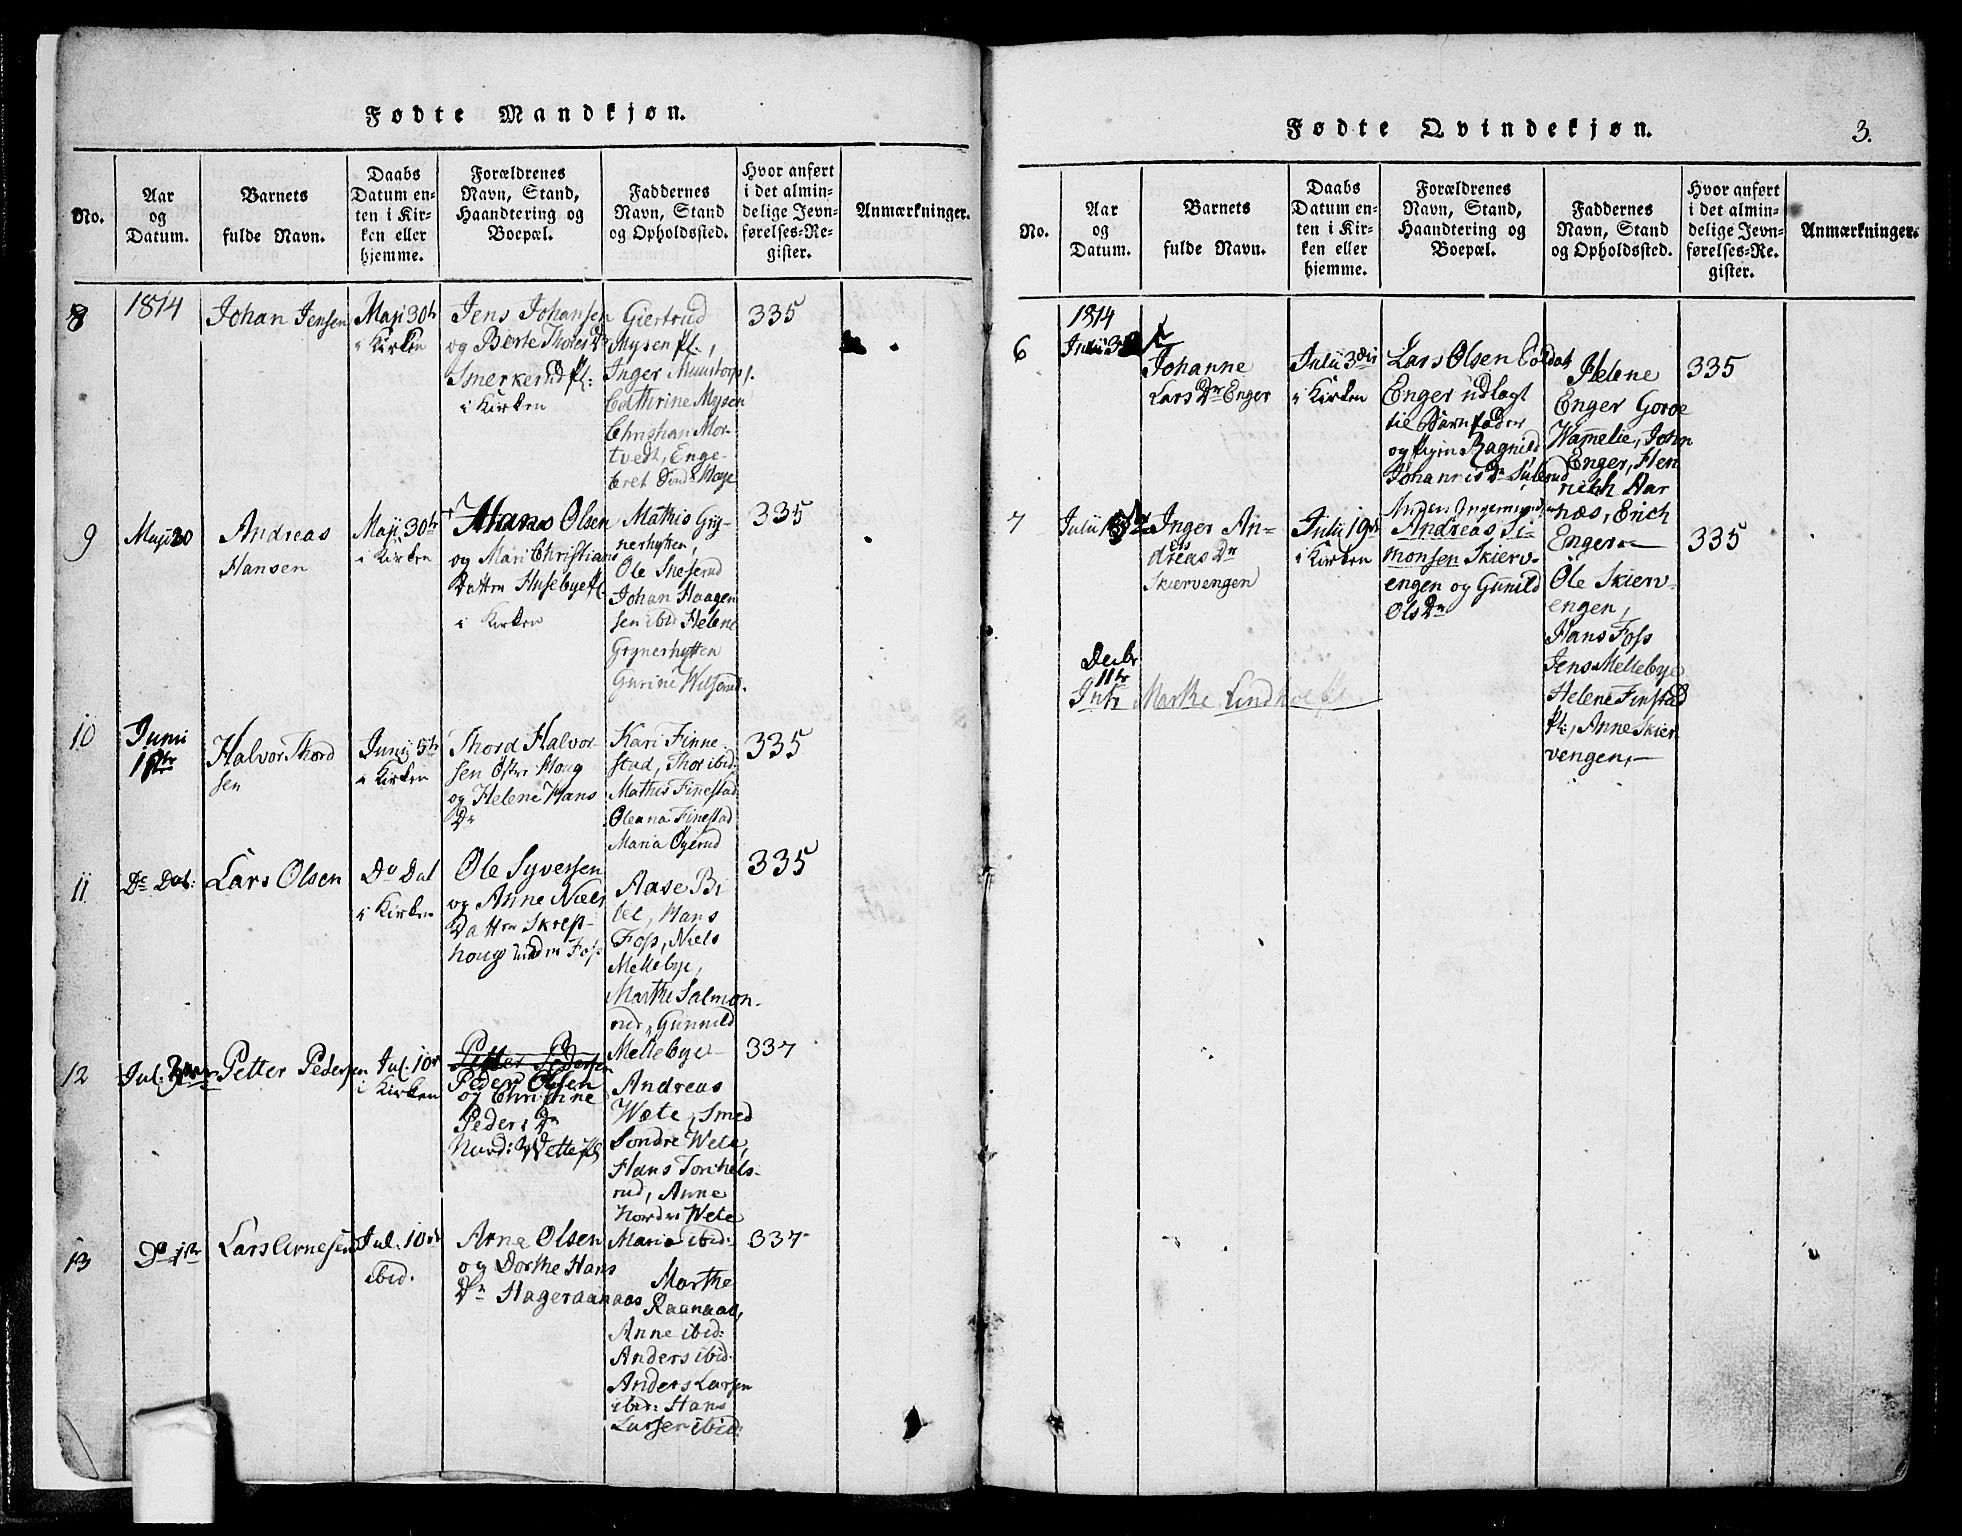 Fødte Mandkjøn.
No.
Aar
og
Datum.
Barnets
fulde Navn.
Daabs
Datum en-
ten i Kir-
ken eller
hjemme.
Forældrenes
Navn, Stand,
Haandtering og
Boepæl.
Faddernes
Navn, Stand
og Opholdssted.
Hvor anført
i det almin-
delige Jevn-
førelses-Re-
gister.
Anmærkninger.
8
1814
Johan Jensen
Maji 30te
i Kirken
Jens Johansen
og Berte Thores Dr
Smerkerud pl:
i Kirken
Giertrud
Mysen pl.,
Inger
Cathrine Mysen
Christian Mor-
tvedt, Enge-
bret
335
9
Maji 20
Andreas
Hansen
Maji 30te
i Kirken
Hans Olsen
og Mari Christians
Datter Husebye pl.
i Kirken
Mathis Gry-
nerhytten,
Ole
Johan Haagen
sen ibid Helene
Grynerhytten
Gurine
335
10
Junii
Halvor Thord
sen
Junij 5te
i Kirken
Thord Halvor-
sen Østre Moug
og Helene Hans
Dr
Kari Finne-
stad, Thor ibid:
Mathis Finestad
Oleana Finestad
Maria Øgerud
335
11
Do Dat:
Lars Olsen
Do Dat
i Kirken
Ole Syversen
og Anne Niels
Datter Skrep-
houg under Foss
Aase Bi
lee, Hans
Foss, Niels
Mellebye,
Marthe Salmon-
rud, Gunnild
Mellebye
335
12
Jul.
Petter Pedersen
Jul. 10de
i Kirken
Petter Pedersen
Peder Olsen
og Christine
Peders Dr
Nord: Wette pl
Andreas
Wæte, Smed
Søndre Wete,
Hans Torkels-
rud, Anne
Nordre Wete
Maria ibid:
337
13
Do 1ste
Lars Arnesen
Jul. 10de
ibid.
Arne Olsen
og Dorthe Hans
Dr Hageraanaas
Marthe
Raanaas,
Anne ibid:
Anders ibid.
Anders Larsen
ibid: Hans
Larsen ibid:
337
Fødte Qvindekjøn.
3.
No.
Aar
og
Datum.
Barnets
fulde Navn.
Daabs
Datum en-
ten i Kir-
ken eller
hjemme.
Forældrenes
Navn, Stand,
Haandtering og
Boepæl.
Faddernes
Navn, Stand
og Opholdssted.
Hvor anført
i det almin-
delige Jevn-
førelses-Re-
gister.
Anmærkninger.
6
1814
Julii
Johanne
Lars Dr Enger
Julii 3die
i Kirken
Lars Olsen Soldat
Enger udlagt
til Barnefader
og Pigen Ragnild
Johannis Dr
Helene
Enger Goroe
Wamelie, John
Enger, Hen
rich Aar
næs, Erich
Enger
335
7
Julii
Inger An-
dreas Dr
Skiervengen
Julii 19de
i Kirken
Andreas Si-
monsen Skierv-
engen og Gunild
Ols Dr
Ole Skierv-
engen,
Hans Foss
Jens Mellebye
Helene Finstad
pl:, Anne Skier
vengen,
335
Decbr
11te
Marthe